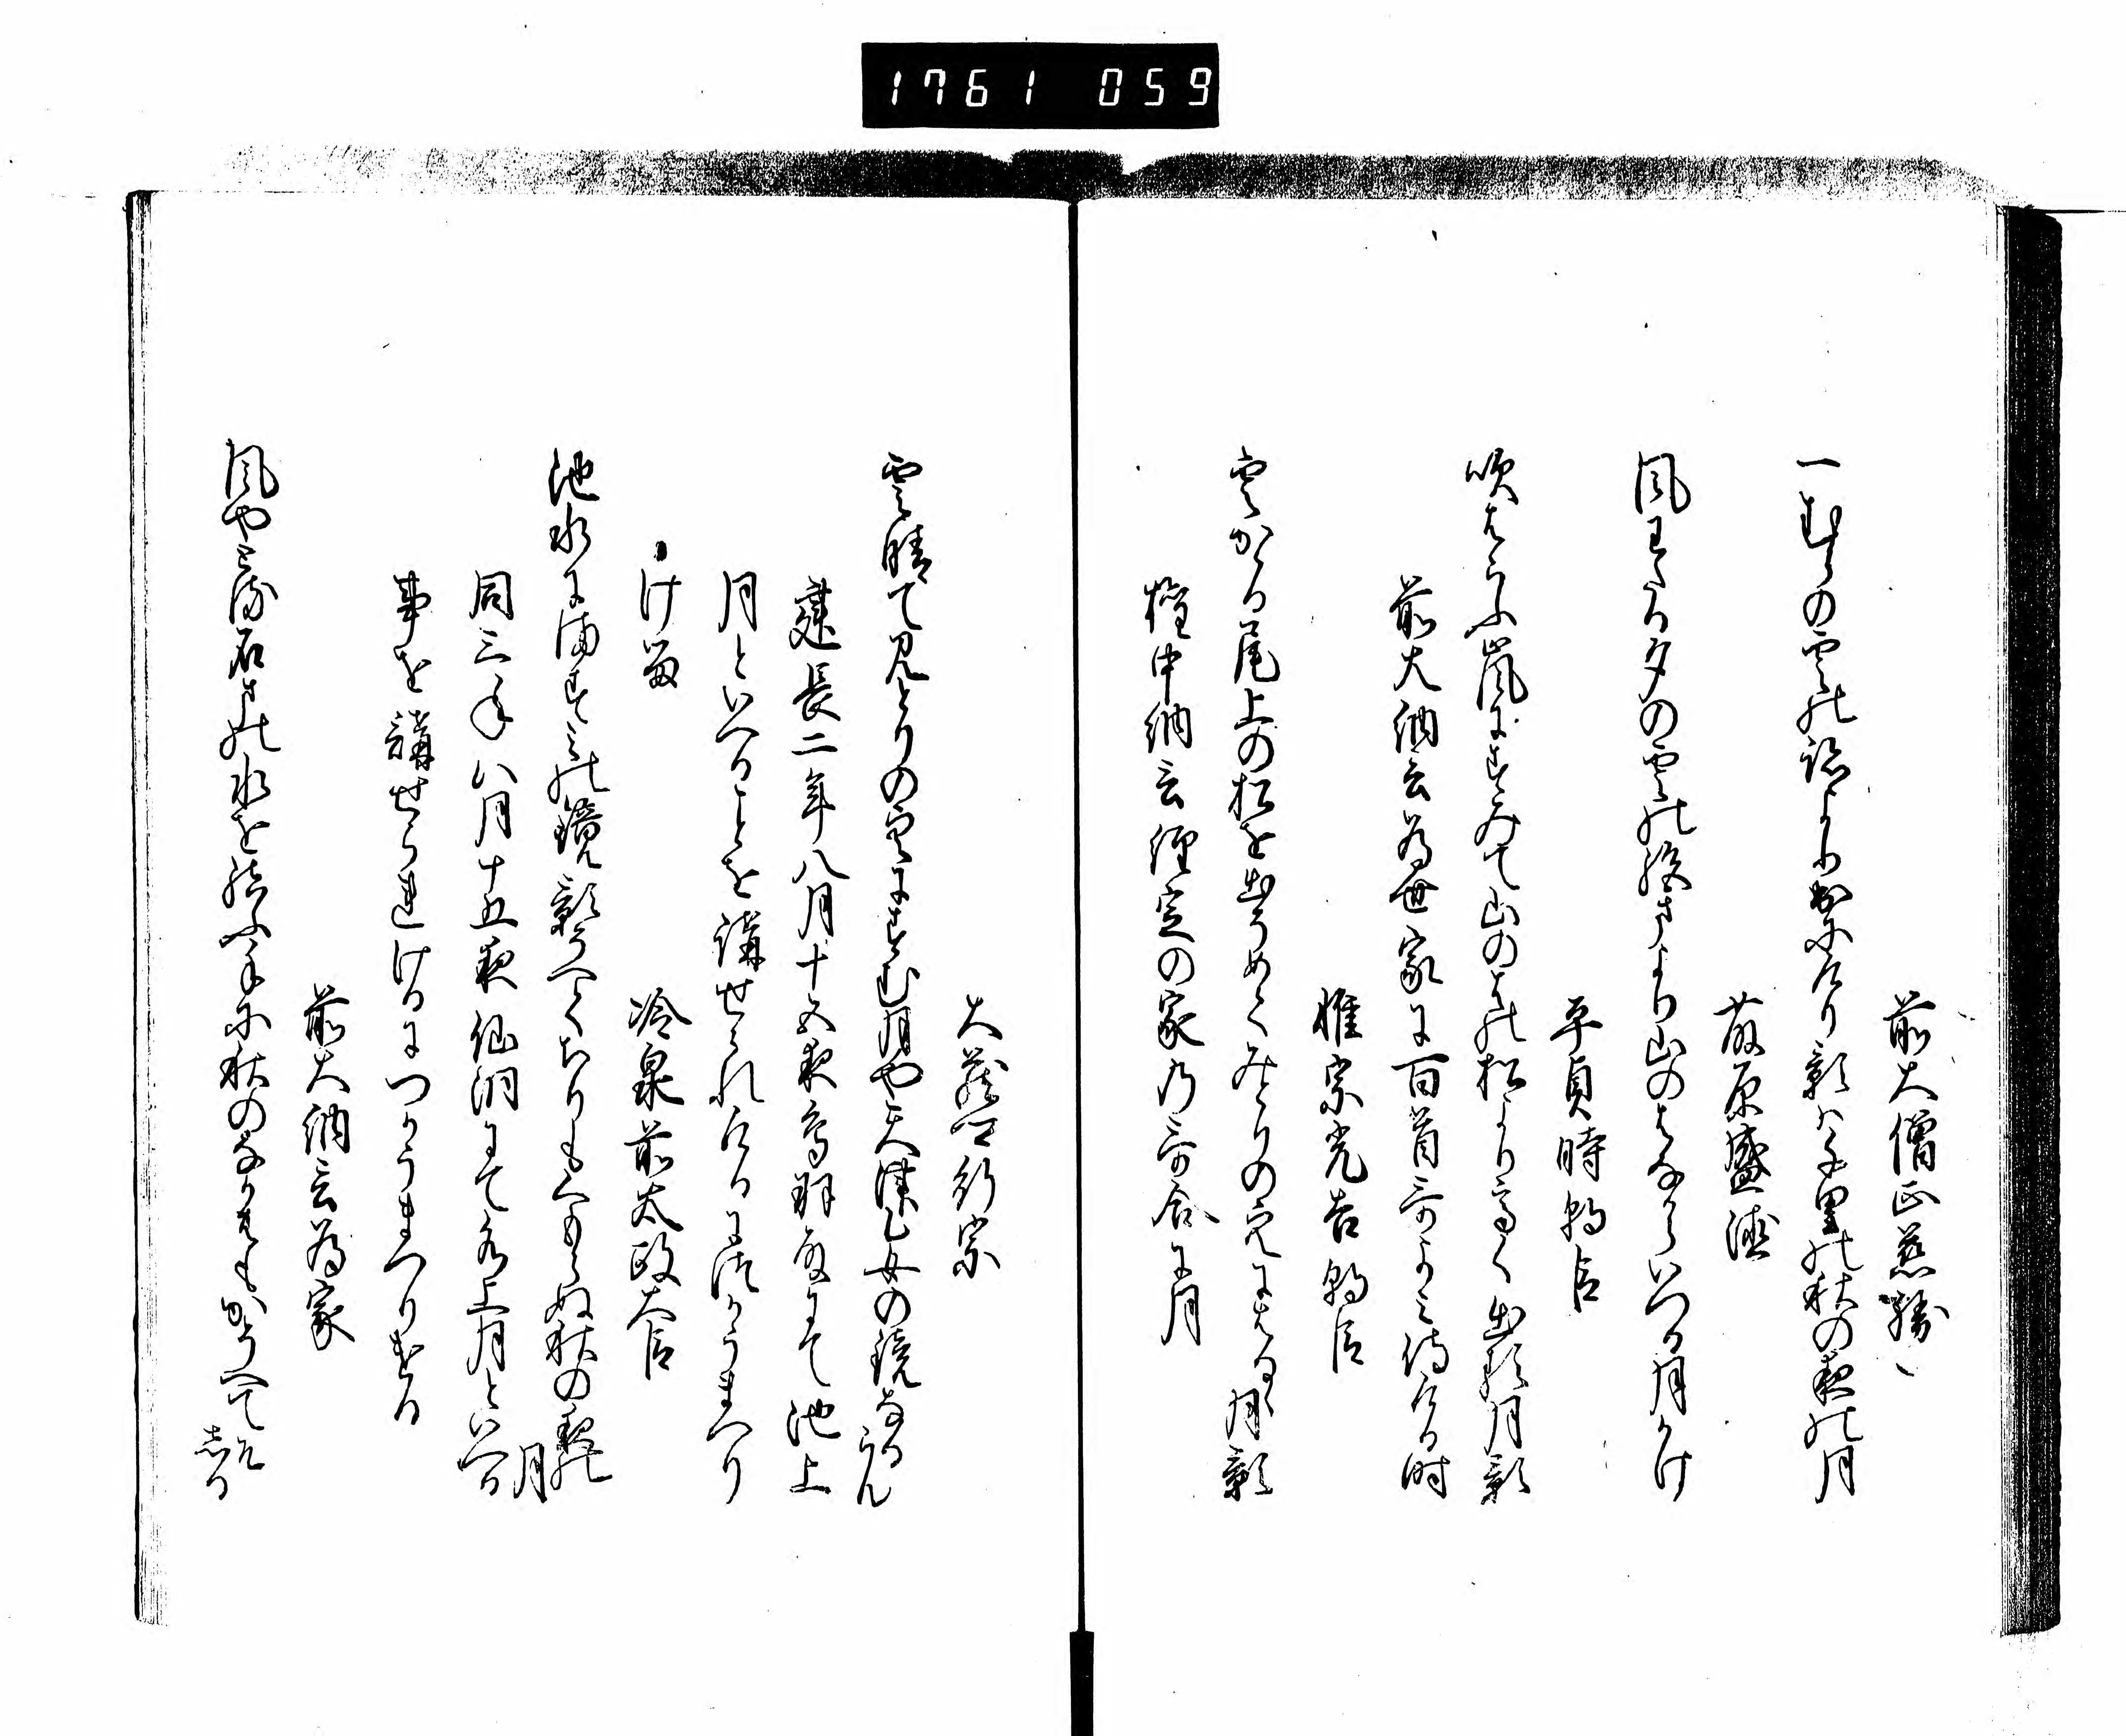 1761 059
前大僧正慈勝
一むらの雲の跡よりかけけり影は千里の秋の夜の月
藤原盛徳
風わたる夕の雲の絶まより山のはなからいつる月かけ
平貞時朝臣
吹はらふ嵐にすみて山のはの松より高く出る月影
前大納言為世家に百首哥よみ侍ける時
惟宗光吉朝臣
雲かゝる尾上の松を出やらてみとりの空にはるゝ月影
権中納言経定の家乃哥合に月
大蔵卿行宗
雲晴てみとりの空にすむ月や天津乙女の鏡なるらん
建長二年八月十五夜鳥羽殿にて池上
月といへることを講せられけるにつかうまつり
ける
冷泉前太政大臣
池水にみかける鏡影そへてちりもくもらぬ秋の夜の月
同三年八月十五夜仙洞にて水上月といへる
事を講せられけるにつかうまつりける
前大納言為家
風やとる石まの水を結ふ手に秋のなかはもかそへてそしる